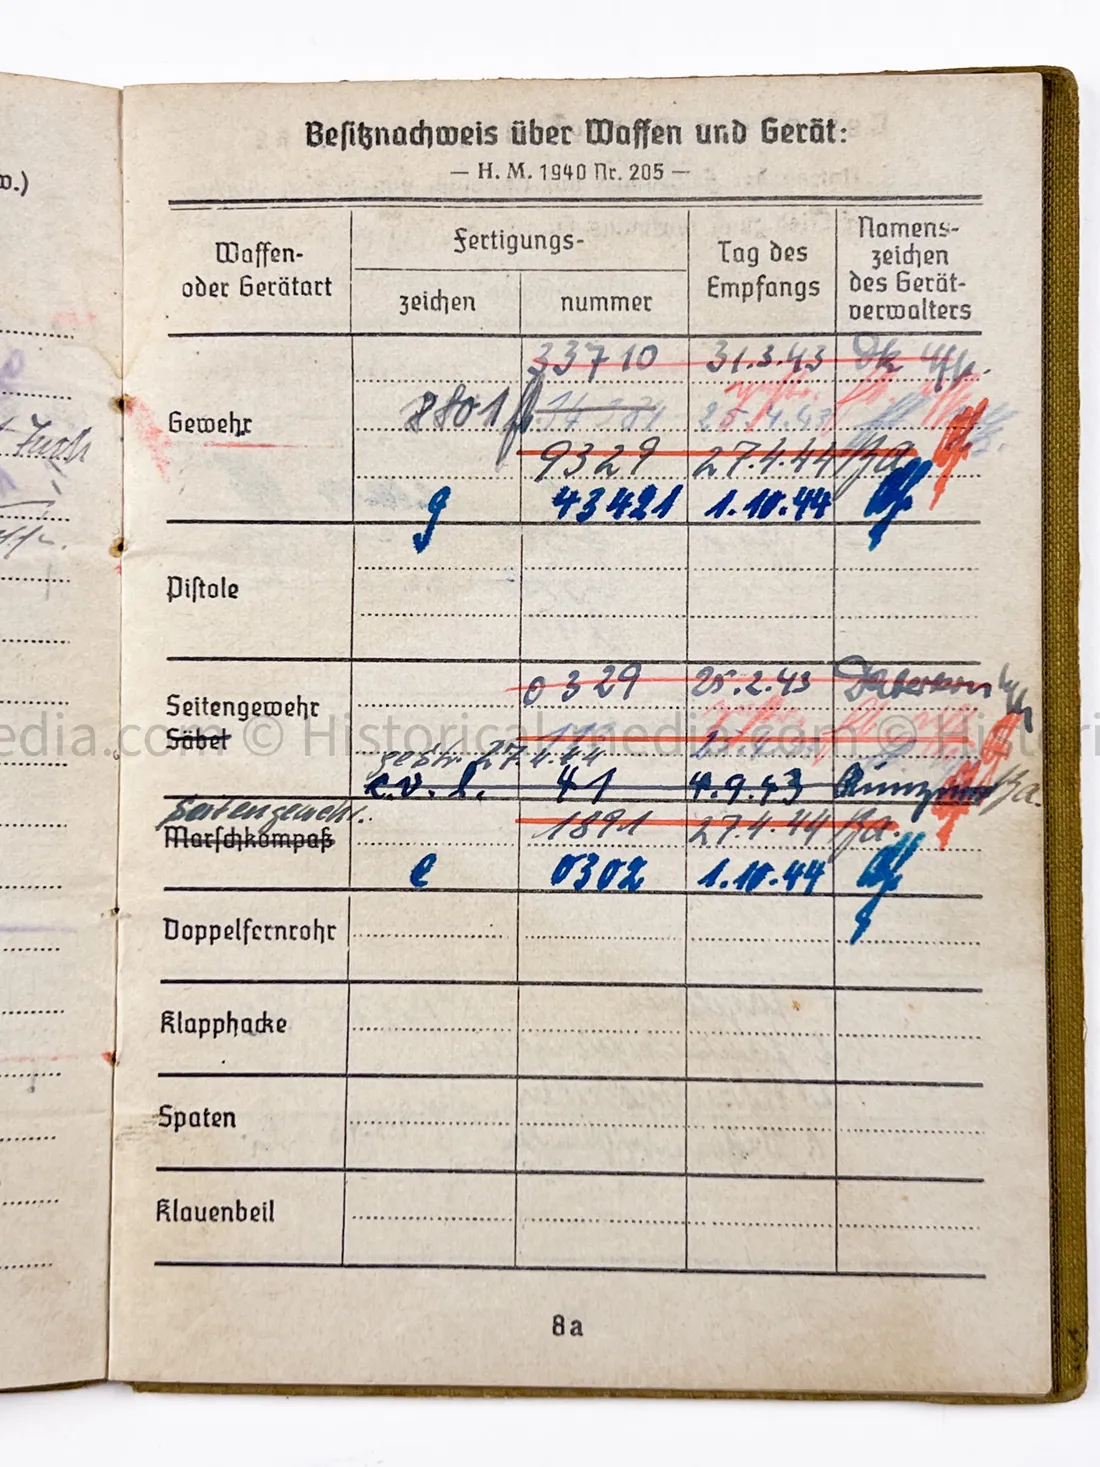 w.)
Besitznachweis über Waffen und Gerät:
— H. M. 1940 Nr. 205 —
Waffen- oder Gerätart
Fertigungs-
zeichen
nummer
Tag des Empfangs
Namens- zeichen des Gerät- verwalters
33710 31.3.43
Gewehr
8801
9329 27.4.44
g 43421 1.10.44
Pistole
0329 25.2.43
Seitengewehr
Säbel
gestr. 27.4.44
c.v.l. 41 4.9.43
Seitengewehr
Marschkompaß
1891 27.4.44
e 0302 1.10.44
Doppelfernrohr
Klapphacke
Spaten
Klauenbeil
8a
edia.com © Historical-media.com © Histori